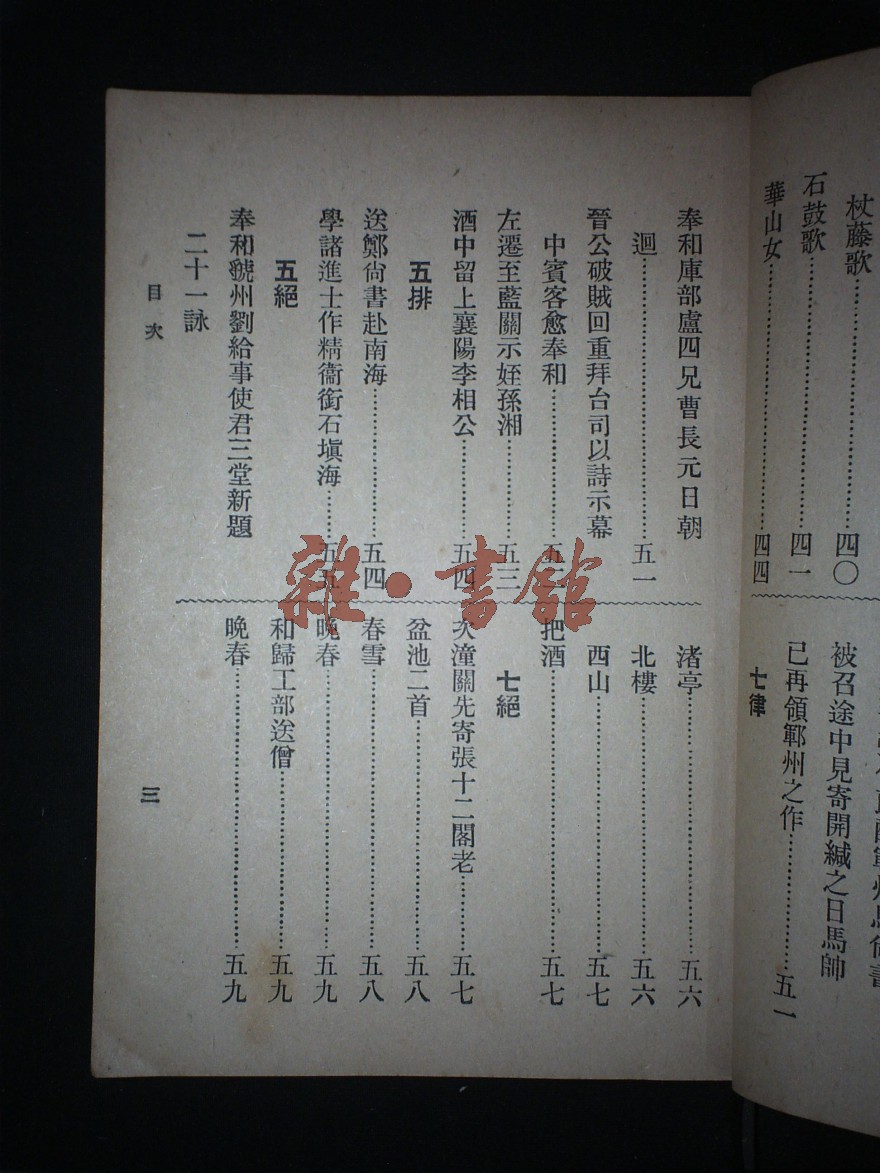 杖藤歌……四〇
石鼓歌……四一
華山女……四四
被召途中見寄開緘之日馬帥
已再領鄆州之作……五一
七律
奉和庫部盧四兄曹長元日朝
迴……五一
晉公破賊回重拜台司以詩示幕
中賓客愈奉和……五三
左遷至藍關示姪孫湘……五三
酒中留上襄陽李相公……五四
五排
送鄭尙書赴南海……五四
學諸進士作精衞銜石塡海……五五
五絕
奉和虢州劉給事使君三堂新題
二十一詠
渚亭……五六
北樓……五六
西山……五七
把酒……五七
七絕
次潼關先寄張十二閣老……五七
盆池二首……五八
春雪……五八
晚春……五九
和歸工部送僧……五九
晚春……五九
目次
三
雜·書館